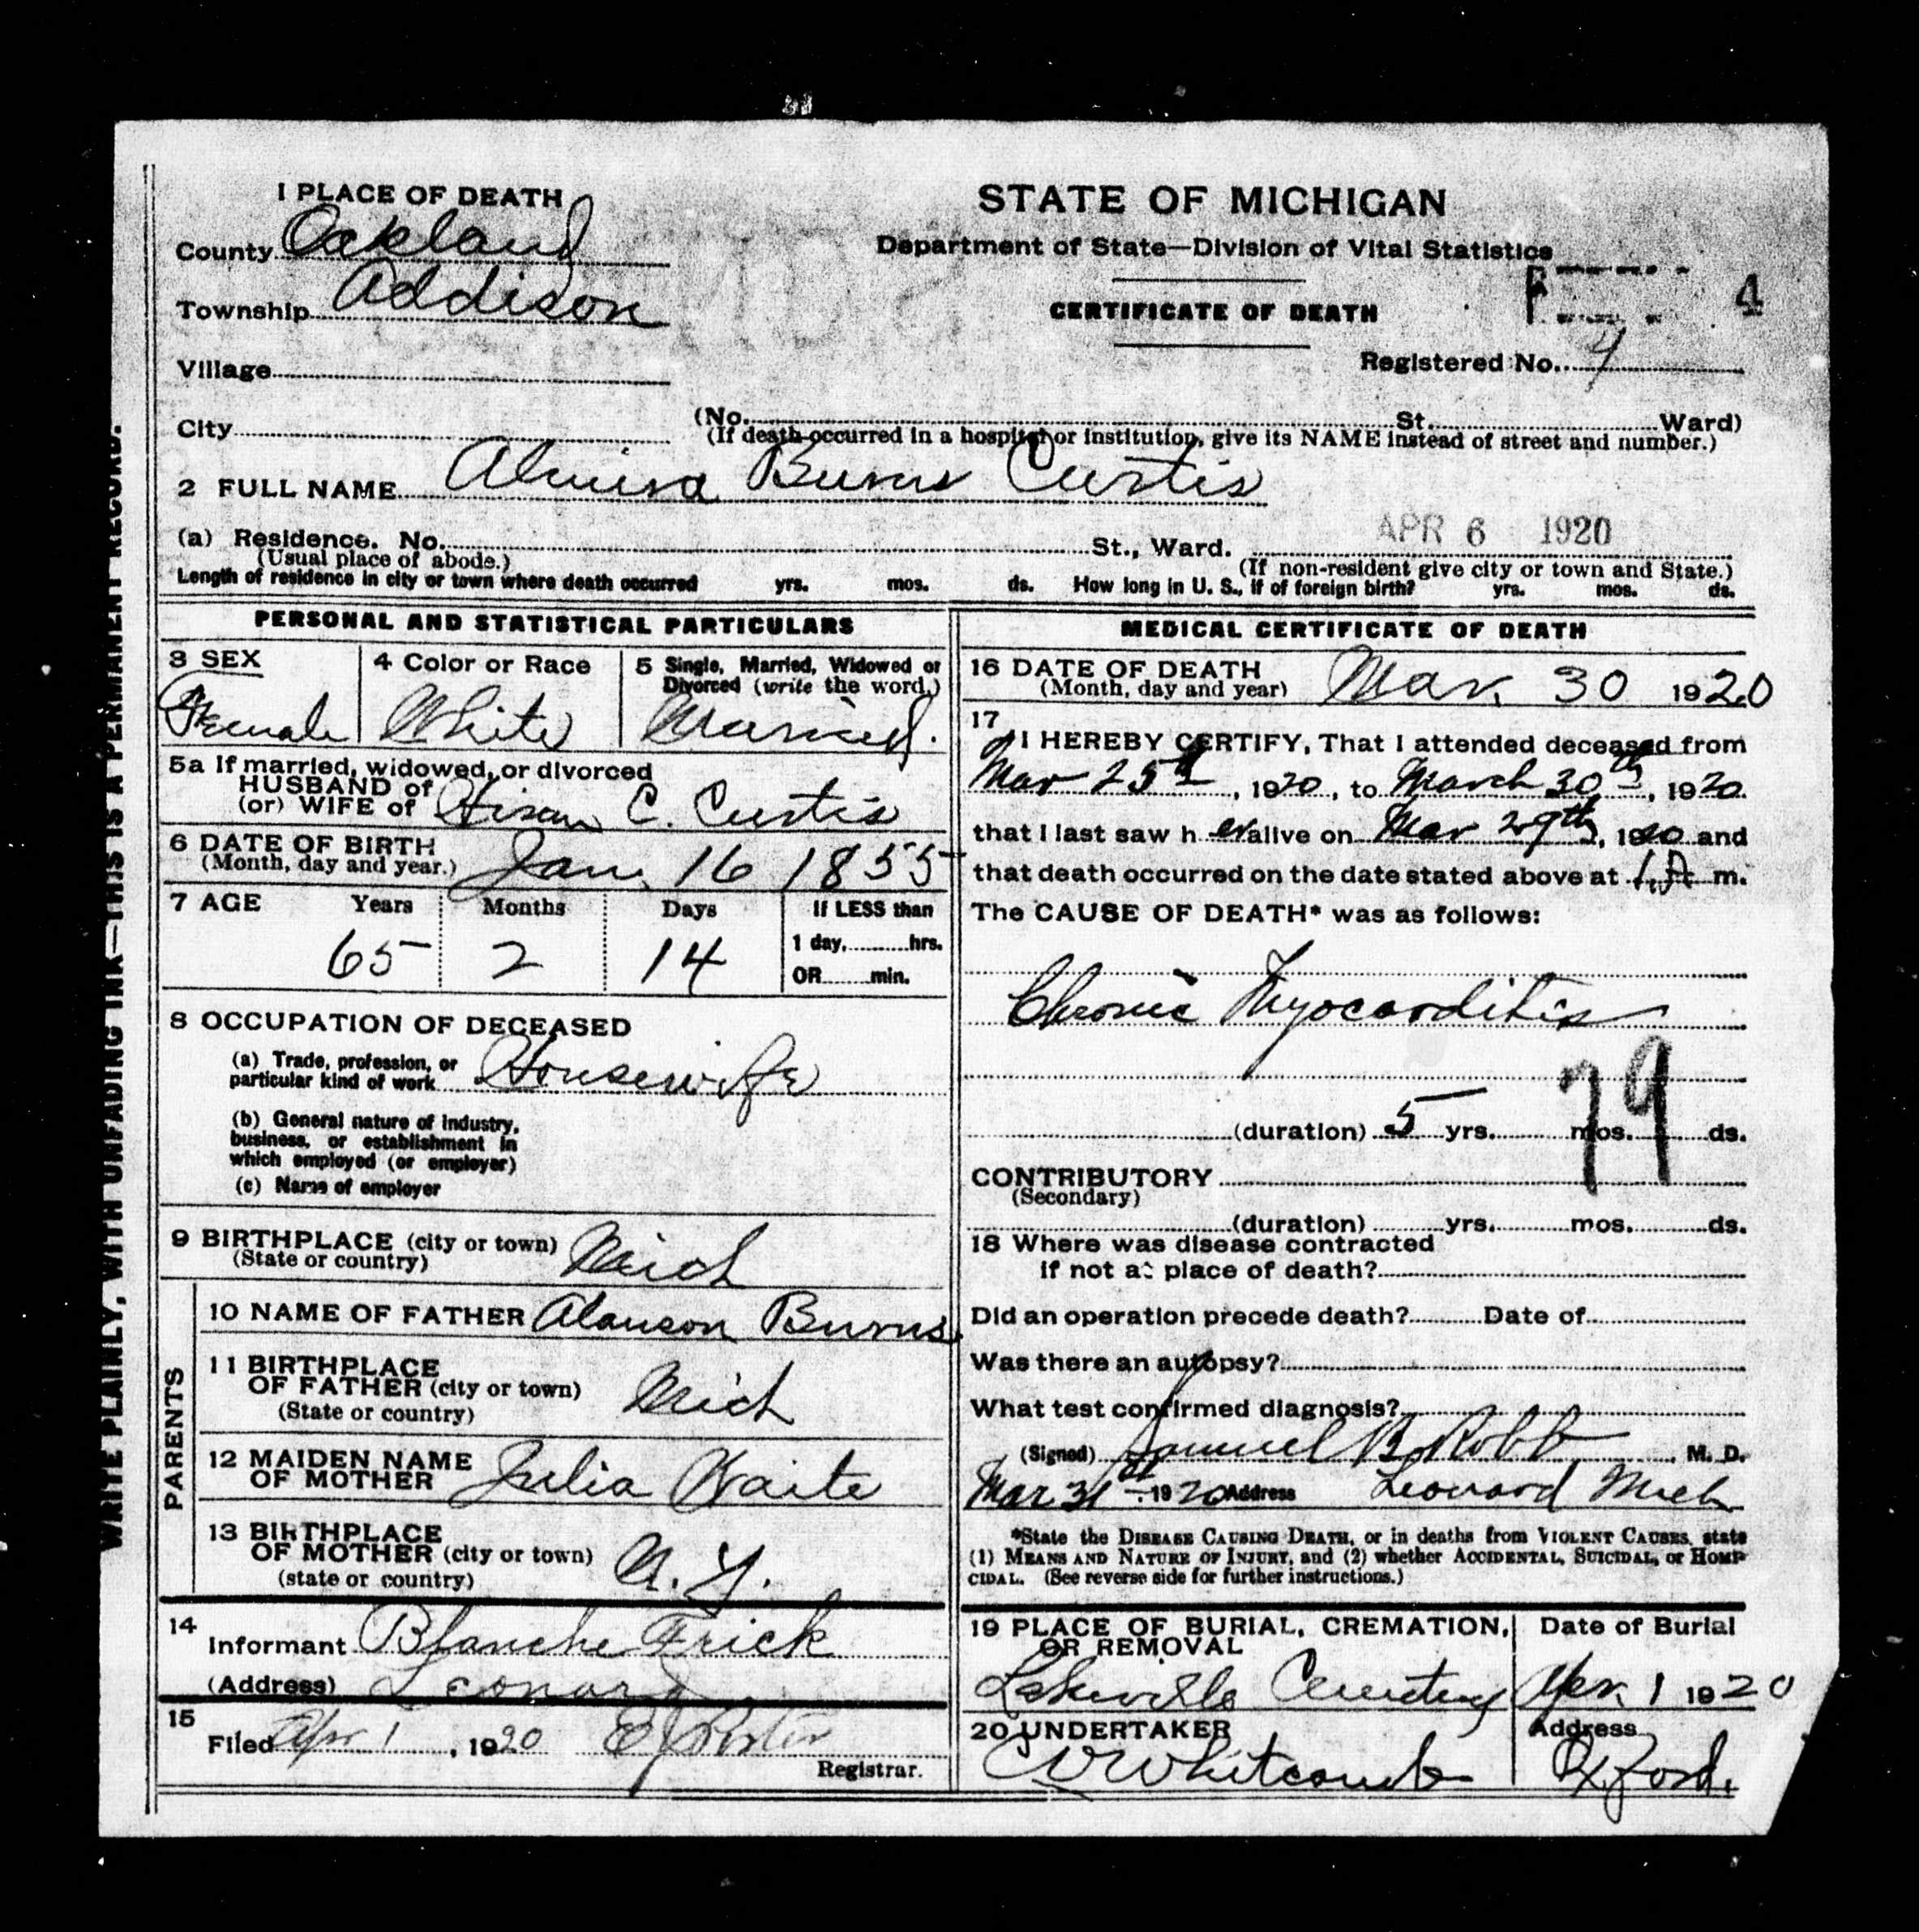 WRITE PLAINLY, WITH UNFADING INK—THIS IS A PERMANENT RECORD.
1 PLACE OF DEATH
County Oakland
Township Addison
Village
City
STATE OF MICHIGAN
Department of State—Division of Vital Statistics
CERTIFICATE OF DEATH
4
Registered No. 4
(No. St. Ward)
(If death occurred in a hospital or institution, give its NAME instead of street and number.)
2 FULL NAME Almira Burns Curtis
(a) Residence. No. St., Ward. APR 6 1920
(Usual place of abode.) (If non-resident give city or town and State.)
Length of residence in city or town where death occurred yrs. mos. ds. How long in U. S., if of foreign birth? yrs. mos. ds.
PERSONAL AND STATISTICAL PARTICULARS
3 SEX
Female
4 Color or Race
White
5 Single, Married, Widowed or
Divorced (write the word.)
Married.
5a If married, widowed, or divorced
HUSBAND of
(or) WIFE of Hiram C. Curtis
6 DATE OF BIRTH
(Month, day and year.) Jan. 16 1855
7 AGE Years Months Days If LESS than
65 2 14 1 day, hrs.
OR min.
8 OCCUPATION OF DECEASED
(a) Trade, profession, or
particular kind of work Housewife
(b) General nature of industry,
business, or establishment in
which employed (or employer)
(c) Name of employer
9 BIRTHPLACE (city or town) Mich
(State or country)
PARENTS
10 NAME OF FATHER Alanson Burns.
11 BIRTHPLACE
OF FATHER (city or town) Mich
(State or country)
12 MAIDEN NAME
OF MOTHER Julia Waite
13 BIRTHPLACE
OF MOTHER (city or town) N. Y.
(state or country)
14
Informant Blanche Frick
(Address) Leonard
15
Filed Apr 1, 1920
Registrar.
MEDICAL CERTIFICATE OF DEATH
16 DATE OF DEATH
(Month, day and year) Mar. 30 1920
17
I HEREBY CERTIFY, That I attended deceased from
Mar 25th, 1920, to March 30th, 1920.
that I last saw her alive on Mar 29th, 1920 and
that death occurred on the date stated above at 1.A m.
The CAUSE OF DEATH* was as follows:
Chronic Myocarditis
79
(duration) 5 yrs. mos. ds.
CONTRIBUTORY
(Secondary)
(duration) yrs. mos. ds.
18 Where was disease contracted
if not at place of death?
Did an operation precede death? Date of
Was there an autopsy?
What test confirmed diagnosis?
(Signed) Samuel B. Robb, M. D.
Mar 31st 1920 Address Leonard Mich
*State the DISEASE CAUSING DEATH, or in deaths from VIOLENT CAUSES, state
(1) MEANS AND NATURE OF INJURY, and (2) whether ACCIDENTAL, SUICIDAL, or HOMI-
CIDAL. (See reverse side for further instructions.)
19 PLACE OF BURIAL, CREMATION,
OR REMOVAL
Lakeville Cemetery
Date of Burial
Apr. 1 1920
20 UNDERTAKER
Whitcomb
Address
Oxford.